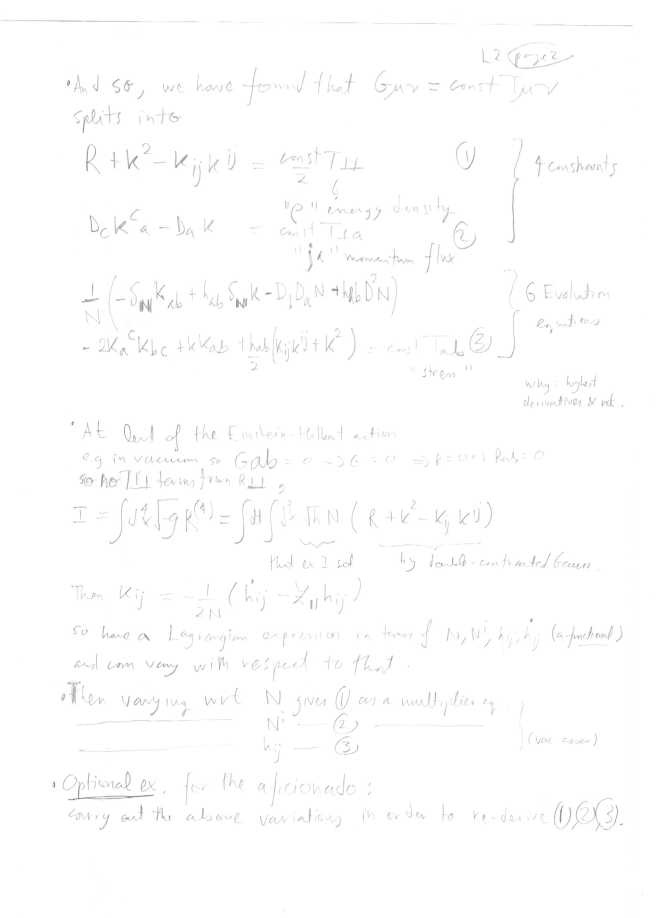 L2 page 2
• And so, we have found that Gμν = const Tμν
splits into
R + k² - Kij K^ij = const/2 T⊥⊥ ① 4 constraints
"ρ" energy density
Dc K^c a - Da K = const T⊥a ②
"ja" momentum flux
1/N (-δN Kab + hab δN K - Db Da N + hab D²N) 6 Evolution
equations
- 2Ka^c Kbc + KKab + hab/2 (Kij K^ij + K²) = const Tab ③
"stress"
why: highest
derivatives & not.
• At level of the Einstein-Hilbert action
eg in vacuum so Gab = 0 → G = 0 ⇒ R = 0 Rab = 0
so no T⊥⊥ terms from R⊥⊥:
I = ∫d⁴x √-g R^(4) = ∫dt ∫d³x √h N (R + K² - Kij K^ij)
by double-contracted Gauss.
Then Kij = -1/2N (ḣij - £N hij)
so have a Lagrangian expression in terms of N, N^i, hij, ḣij (a functional)
and can vary with respect to that.
• Then varying wrt N gives ① as a multiplier eq.
N^i — ②
hij — ③
(vac cases)
• Optional ex. for the aficionado:
carry out the above variations in order to re-derive ①②③.